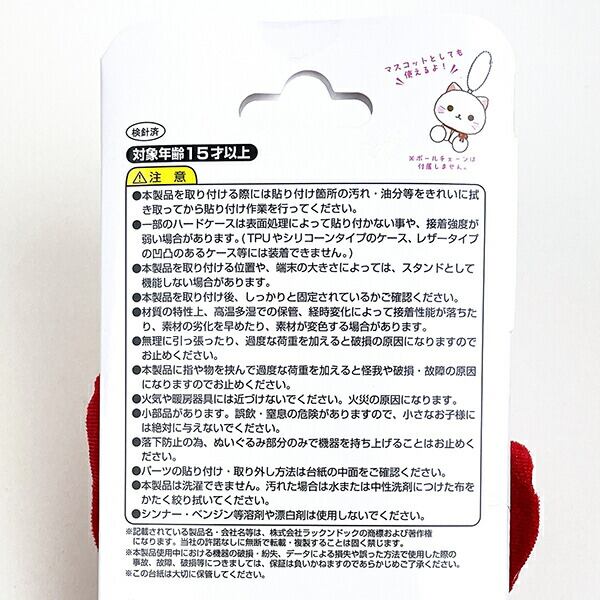 マスコットとしても
使えるよ！
※ボールチェーンは
付属しません。
検針済
対象年齢15才以上
⚠注 意
●本製品を取り付ける際には貼り付け箇所の汚れ・油分等をきれいに拭
き取ってから貼り付け作業を行ってください。
●一部のハードケースは表面処理によって貼り付かない事や、接着強度が
弱い場合があります。(TPUやシリコーンタイプのケース、レザータイプ
の凹凸のあるケース等には装着できません。)
●本製品を取り付ける位置や、端末の大きさによっては、スタンドとして
機能しない場合があります。
●本製品を取り付け後、しっかりと固定されているかご確認ください。
●材質の特性上、高温多湿での保管、経時変化によって接着性能が落ちた
り、素材の劣化を早めたり、素材が変色する場合があります。
●無理に引っ張ったり、過度な荷重を加えると破損の原因になりますので
お止めください。
●本製品に指や物を挟んで過度な荷重を加えると怪我や破損・故障の原因
になりますのでお止めください。
●火気や暖房器具には近づけないでください。火災の原因になります。
●小部品があります。誤飲・窒息の危険がありますので、小さなお子様に
は絶対に与えないでください。
●落下防止の為、ぬいぐるみ部分のみで機器を持ち上げることはお止めくだ
さい。
●パーツの貼り付け・取り外し方法は台紙の中面をご確認ください。
●本製品は洗濯できません。汚れた場合は水または中性洗剤につけた布を
かたく絞り拭いてください。
●シンナー・ベンジン等溶剤や漂白剤は使用しないでください。
※記載されている製品名・会社名等は、株式会社ラックンドックの商標および著作権
になります。当社の許諾なしに無断で転載・複製することは固く禁じます。
※本製品使用中における機器の破損・紛失、データによる損失や誤った方法で使用した際の
事故、故障、破損等につきましては、保証は負いかねますのであらかじめご了承ください。
※この台紙は大切に保管してください。